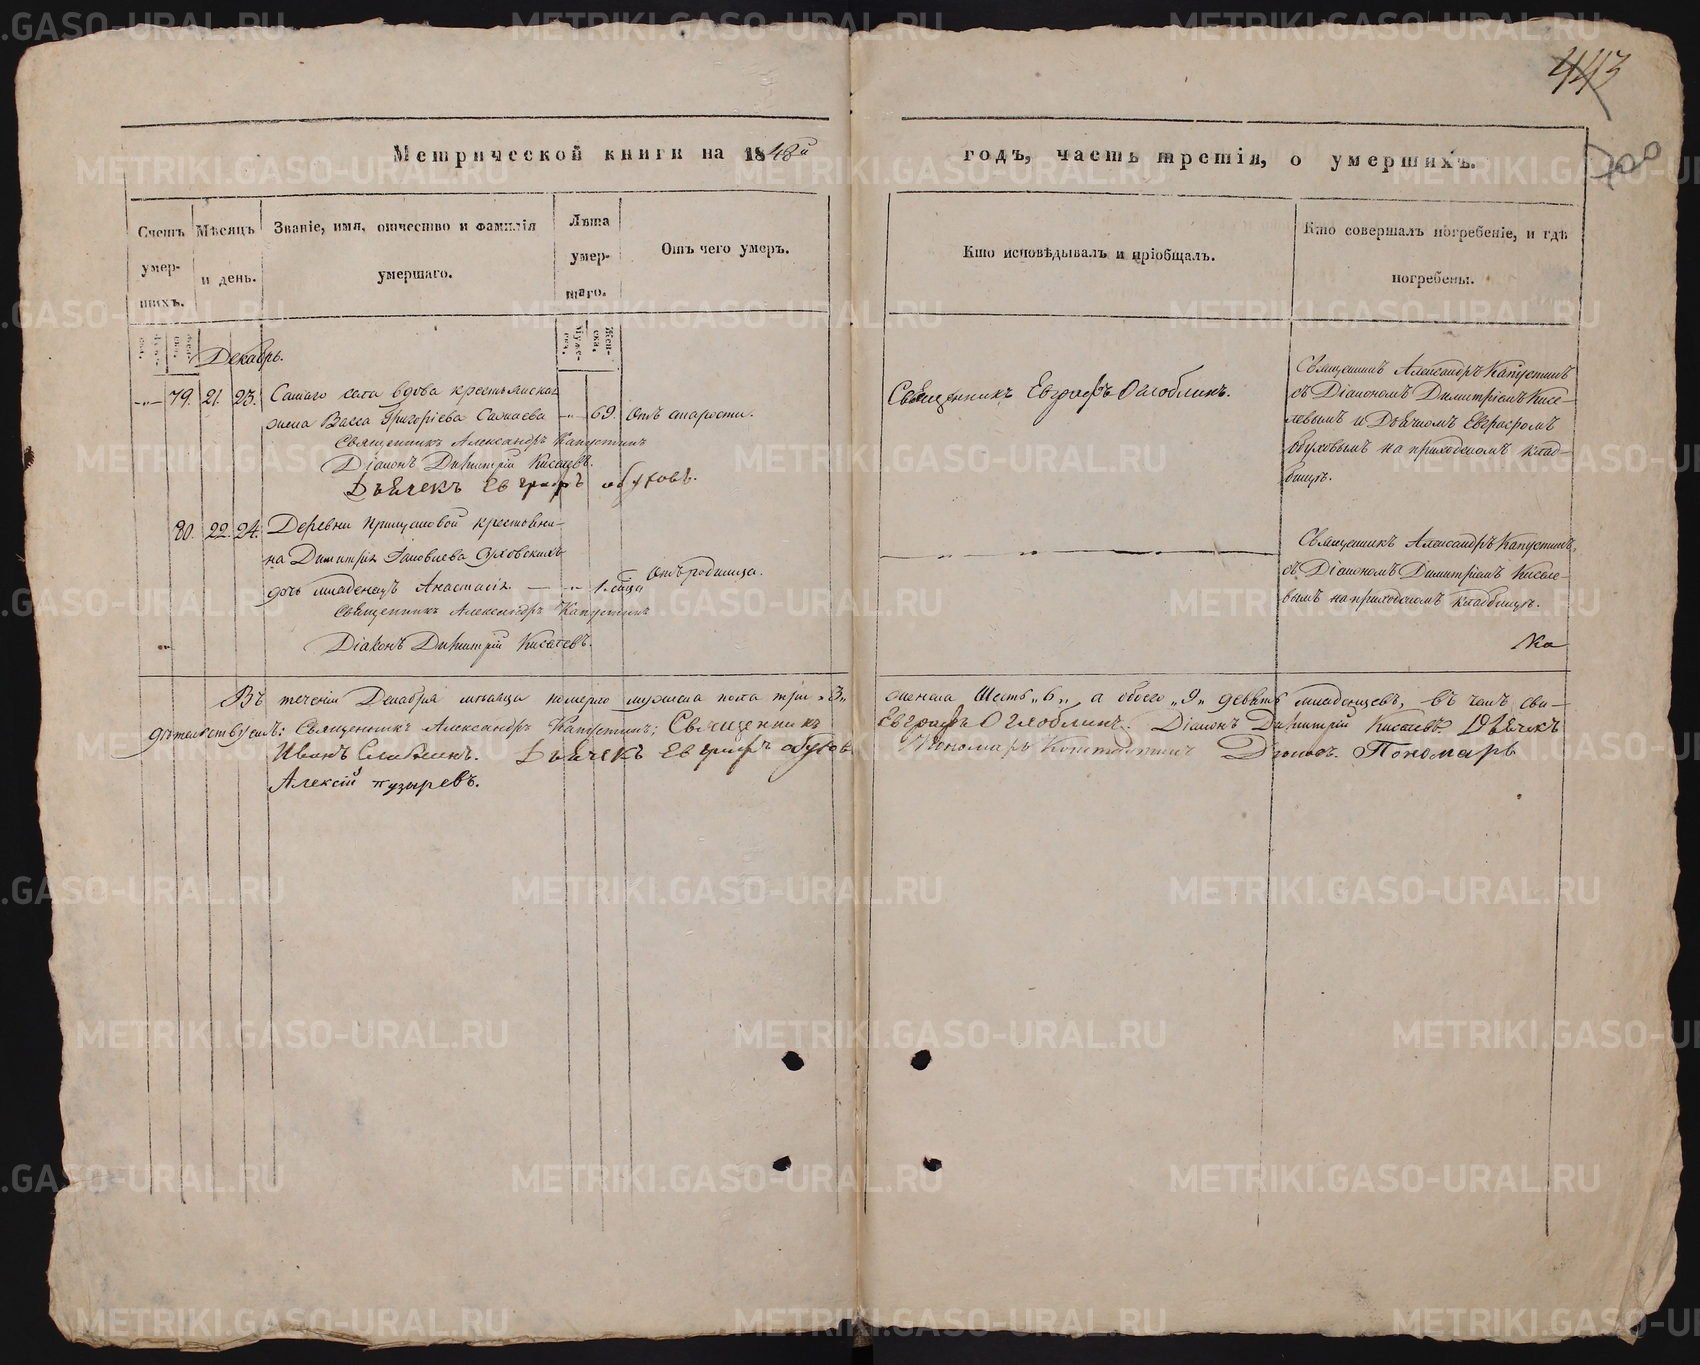 443
700
Метрической книги на 1848й
годъ, часть третія, о умершихъ.
Счетъ умер-
шихъ.
Мѣсяцъ
и день.
Званіе, имя, отчество и фамилія
умершаго.
Лѣта
умер-
шаго.
Отъ чего умеръ.
Кто исповѣдывалъ и пріобщалъ.
Кто совершалъ погребеніе, и гдѣ
погребены.
Декабрь.
79. 21. 23.
вдова крестьянская
жена Васса Григоріева
69. Отъ старости.
Священникъ Александръ Капустинъ
Діаконъ Димитрій Киселевъ.
Дьячекъ Евграфъ Обуховъ.
Священникъ Евграфъ Оглоблинъ.
Священникъ Александръ Капустинъ
съ Діакономъ Димитріемъ Кисе-
левымъ и Дьячкомъ Евграфомъ
Обуховымъ на приходскомъ клад-
бищѣ.
80. 22. 24. Деревни крестьяни-
на Димитрія
дочь младенецъ Анастасія
Отъ родимца.
Священникъ Александръ Капустинъ
Діаконъ Димитрій Киселевъ.
Священникъ Александръ Капустинъ,
съ Діакономъ Димитріемъ Киселе-
вымъ на приходскомъ кладбищѣ.
Въ теченіи Декабря мѣсяца померло мужеска пола три „3„
женска Шесть „6„, а обоего „9„ девять младенцевъ, въ чемъ сви-
дѣтельствуемъ: Священникъ Александръ Капустинъ; Священникъ
Евграфъ Оглоблинъ. Діаконъ Димитрій Киселевъ Дьячекъ
Иванъ Дьячекъ Евграфъ Обуховъ
Пономарь Пономарь
Алексій Пузыревъ.
METRIKI.GASO-URAL.RU